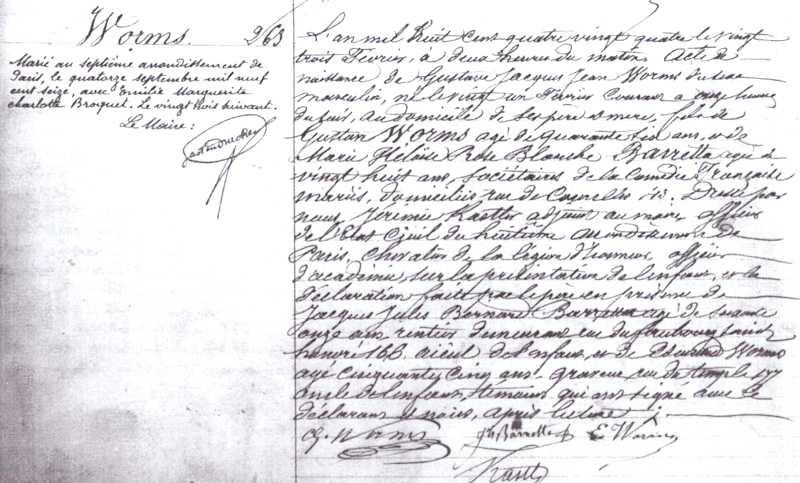 Worms. 263
Marié au septième arrondissement de
Paris, le quatorze septembre mil neuf
cent seize, avec Emilie Marguerite
Charlotte Broquet. Le vingt trois suivant.
Le Maire :
L'an mil huit cent quatre vingt quatre le vingt
trois Février, à deux heures du matin. Acte de
naissance de Gustave Jacques Jean Worms du sexe
masculin, né le vingt un Février courant à onze heures
du soir, au domicile de ses père et mère, fils de
Gustave Worms agé de quarante six ans, et de
Marie Héloïse Rose Blanche Barretta agée de
vingt huit ans, sociétaires de la Comédie Française
mariés, domiciliés rue de 13. Dressé par
nous, Jérémie Kastler adjoint au maire officier
de l'Etat Civil du huitième arrondissement de
Paris, Chevalier de la légion d'honneur officier
d'académie sur la présentation de l'enfant, et la
déclaration faite par le père en présence de
Jacques Jules Bernard Barretta agé de soixante
onze ans rentier demeurant rue du faubourg saint
honoré 166. aïeul de l'enfant, et de Edouard Worms
agé cinquante cinq ans graveur rue du temple 17
oncle de l'enfant, témoins qui ont signé avec le
déclarant et nous, après lecture :
G. Worms Barretta E Worms
Kastler